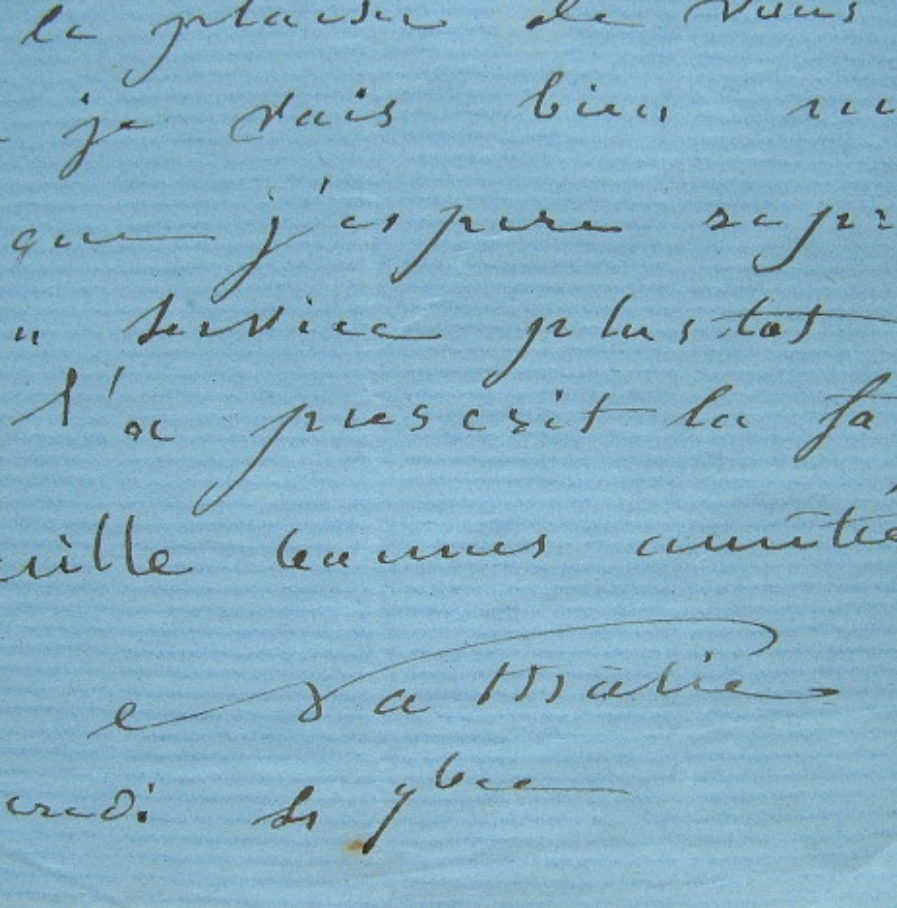 le plaisir de vous
je vais bien
que j'espere repr
service plustot
l'a prescrit la fa
mille bonnes amitié
Nathalie
credi 9bre